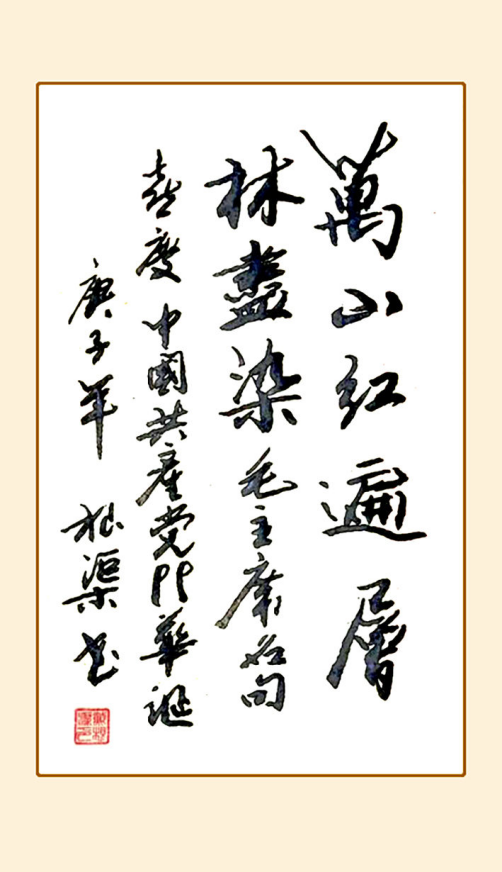 萬山红遍層
林盡染毛主席名句
喜度中國共產党99華誕
庚子年 渠书